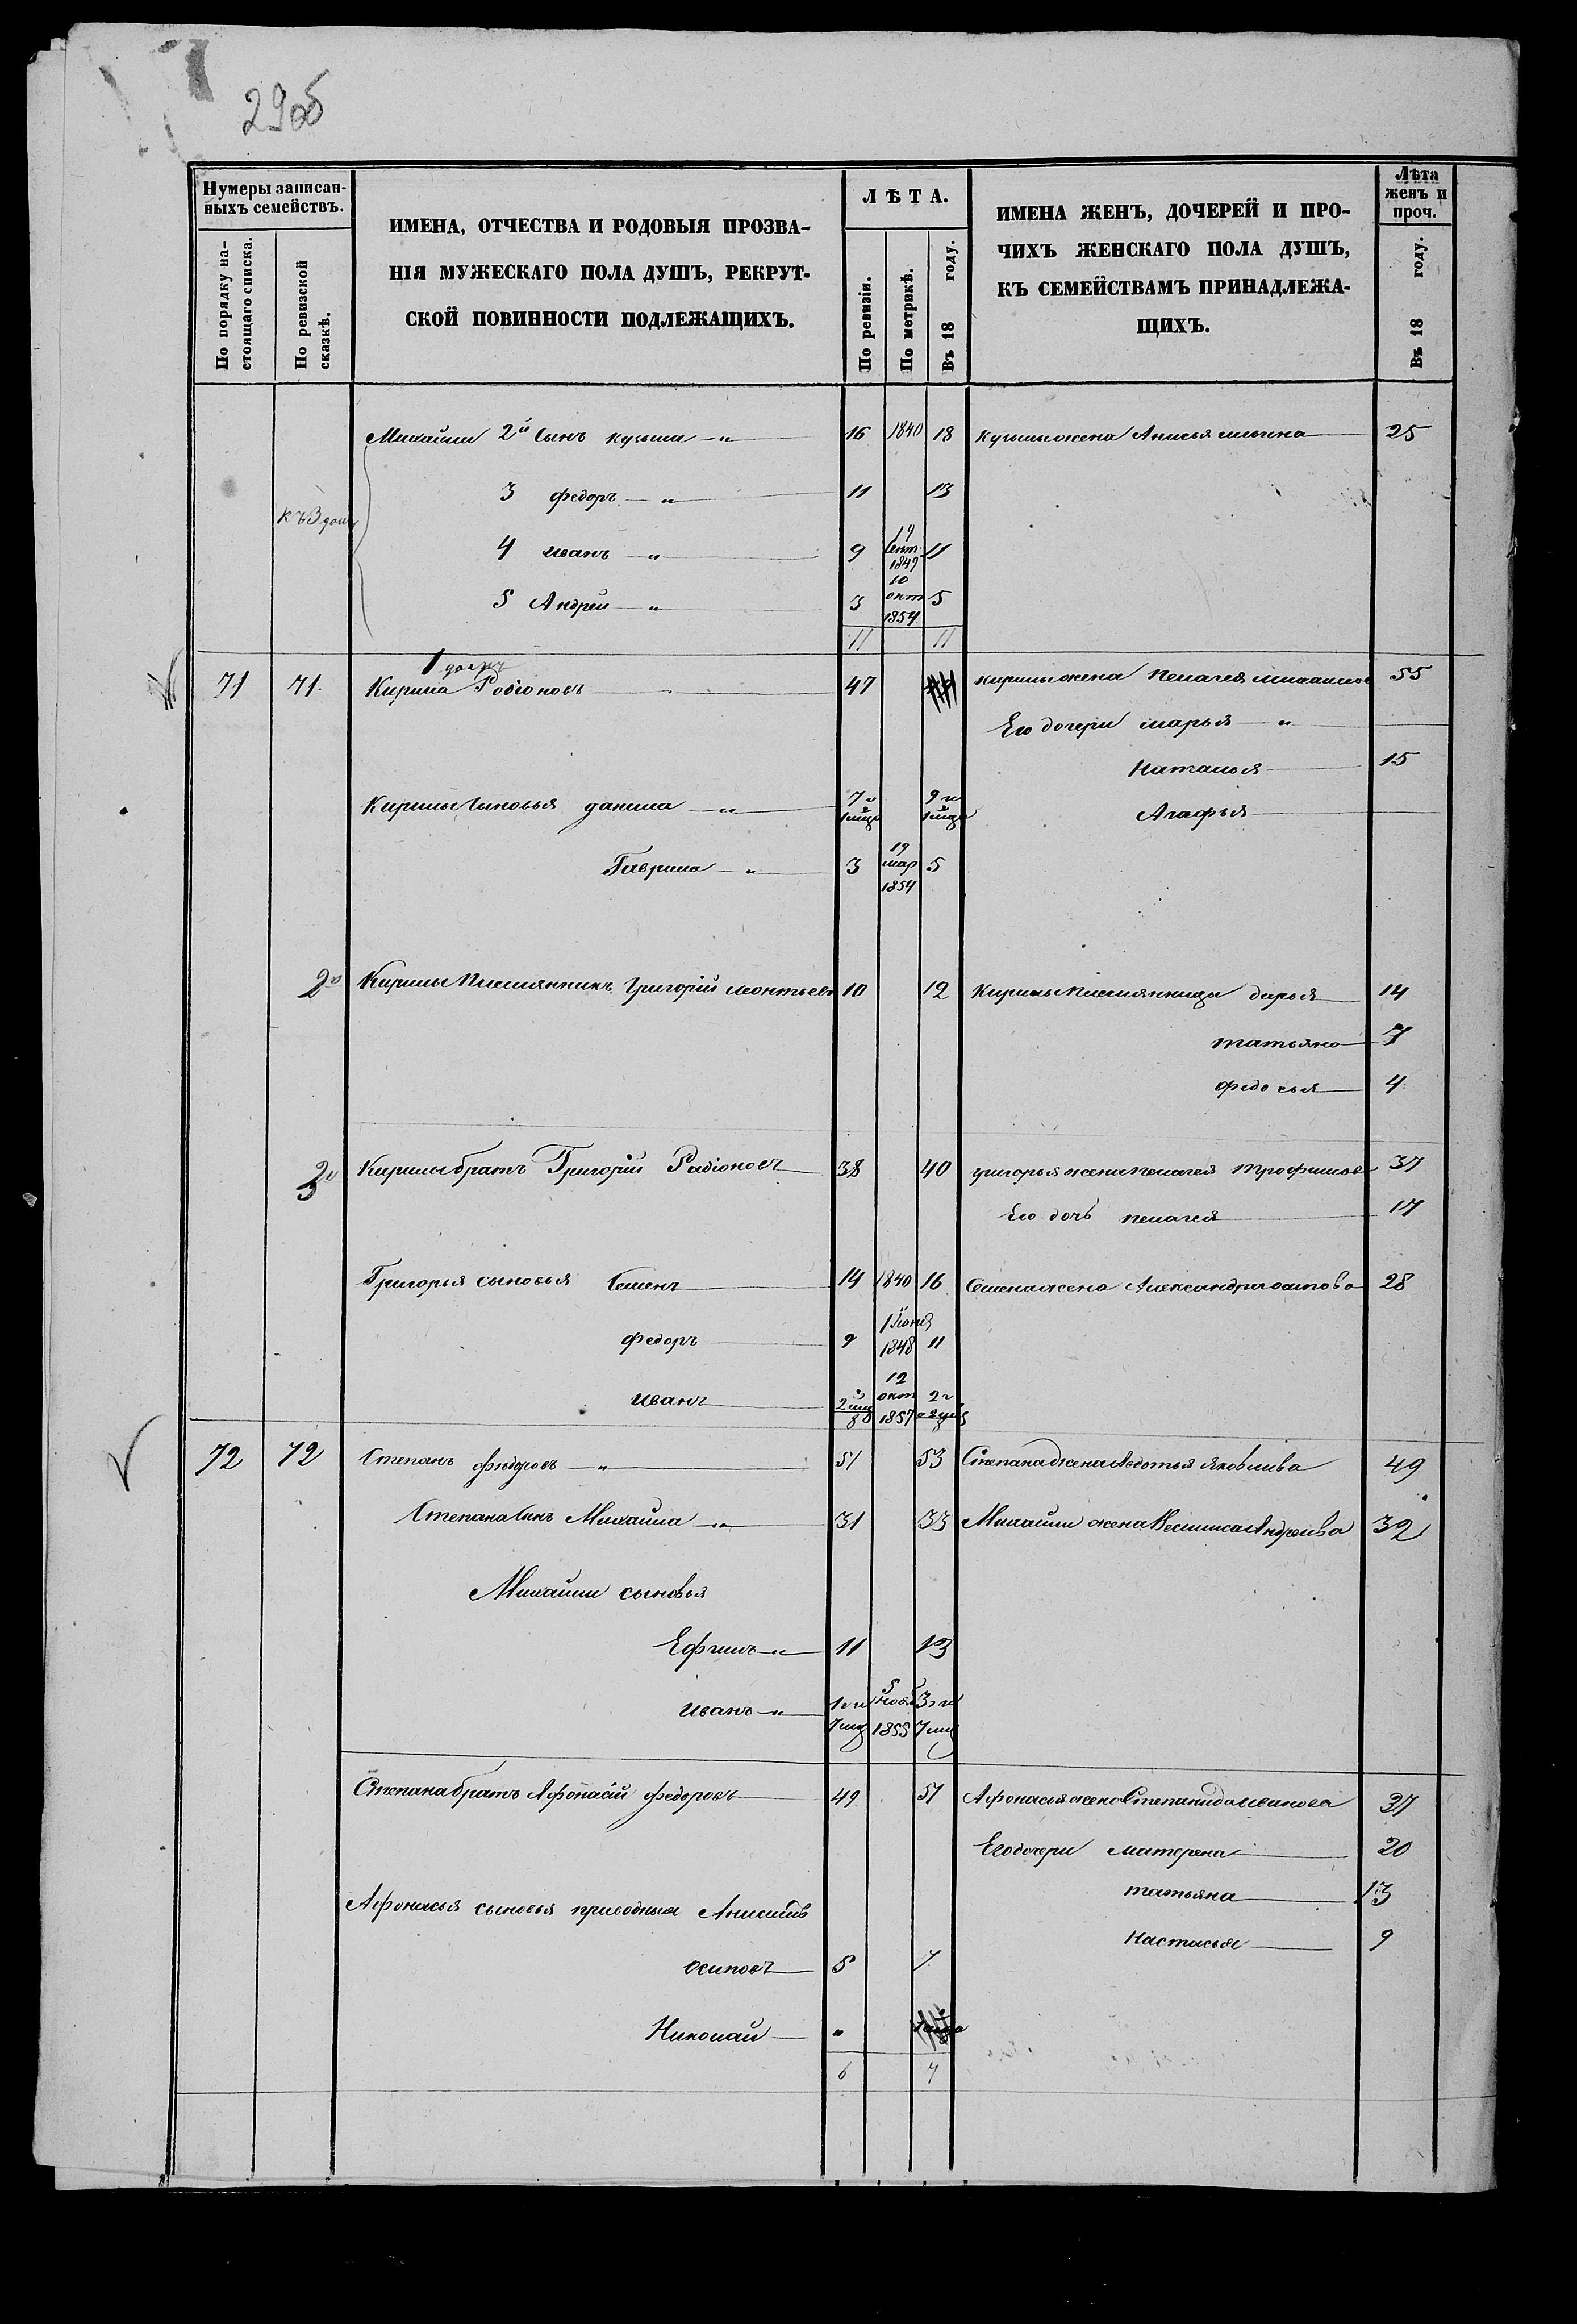 29об
Нумеры записан-
ныхъ семействъ.
По порядку на-
стоящаго списка.
По ревизской
сказкѣ.
ИМЕНА, ОТЧЕСТВА И РОДОВЫЯ ПРОЗВА-
НІЯ МУЖЕСКАГО ПОЛА ДУШЪ, РЕКРУТ-
СКОЙ ПОВИННОСТИ ПОДЛЕЖАЩИХЪ.
ЛѢТА.
По ревизіи.
По метрикѣ.
Въ 18 году.
ИМЕНА ЖЕНЪ, ДОЧЕРЕЙ И ПРО-
ЧИХЪ ЖЕНСКАГО ПОЛА ДУШЪ,
КЪ СЕМЕЙСТВАМЪ ПРИНАДЛЕЖА-
ЩИХЪ.
Лѣта
женъ и
проч.
Въ 18 году.
Михайлы 2й Сынъ кузьма — „ 16 1840 18 кузьмы жена Анисья ильина 25
3 федоръ — „ 11 13
къ 3 дому
4 иванъ — „ 9 19 Сент 1849 11
5 Андрей — „ 3 10 окт 1854 5
11 11
1 домъ
71 71 Кирила Родіоновъ 47 кирилы жена Пелагея михаилов 55
Его дочери марья — „
Наталья 15
Кирилы Сыновья данила — „ 7 и 9 и Агафья
Гаврила — „ 3 19 мар 1854 5
2й Кирилы Племянникъ Григорій леонтьевъ 10 12 Кирилы племянницы дарья 14
татьяна 7
федосья 4
3й Кирилы братъ Григорій Радіоновъ 38 40 григорья жена пелагея трофимов 37
Его дочь пелагея 17
Григорья сыновья Семенъ 14 1840 16 Семена жена Александра осипова 28
федоръ 9 1 Іюня 1848 11
иванъ 12 окт 1857
72 72 Степанъ федоровъ — „ 51 53 Степана жена Авдотья Яковлива 49
Степана Сынъ Михайла — „ 31 33 Михайлы жена Василиса Андреива 32
Михайлы сыновья
Ефимъ — „ 11 13
иванъ — „ 5 нояб 1855
Степана братъ Афонасій федоровъ 49 51 Афонасья жена Степанида иванова 37
Его дочери матерена 20
татьяна 13
Афонасья сыновья приводныя Аникита
Настасья 9
осиповъ 5 7
Николай — „
6 7